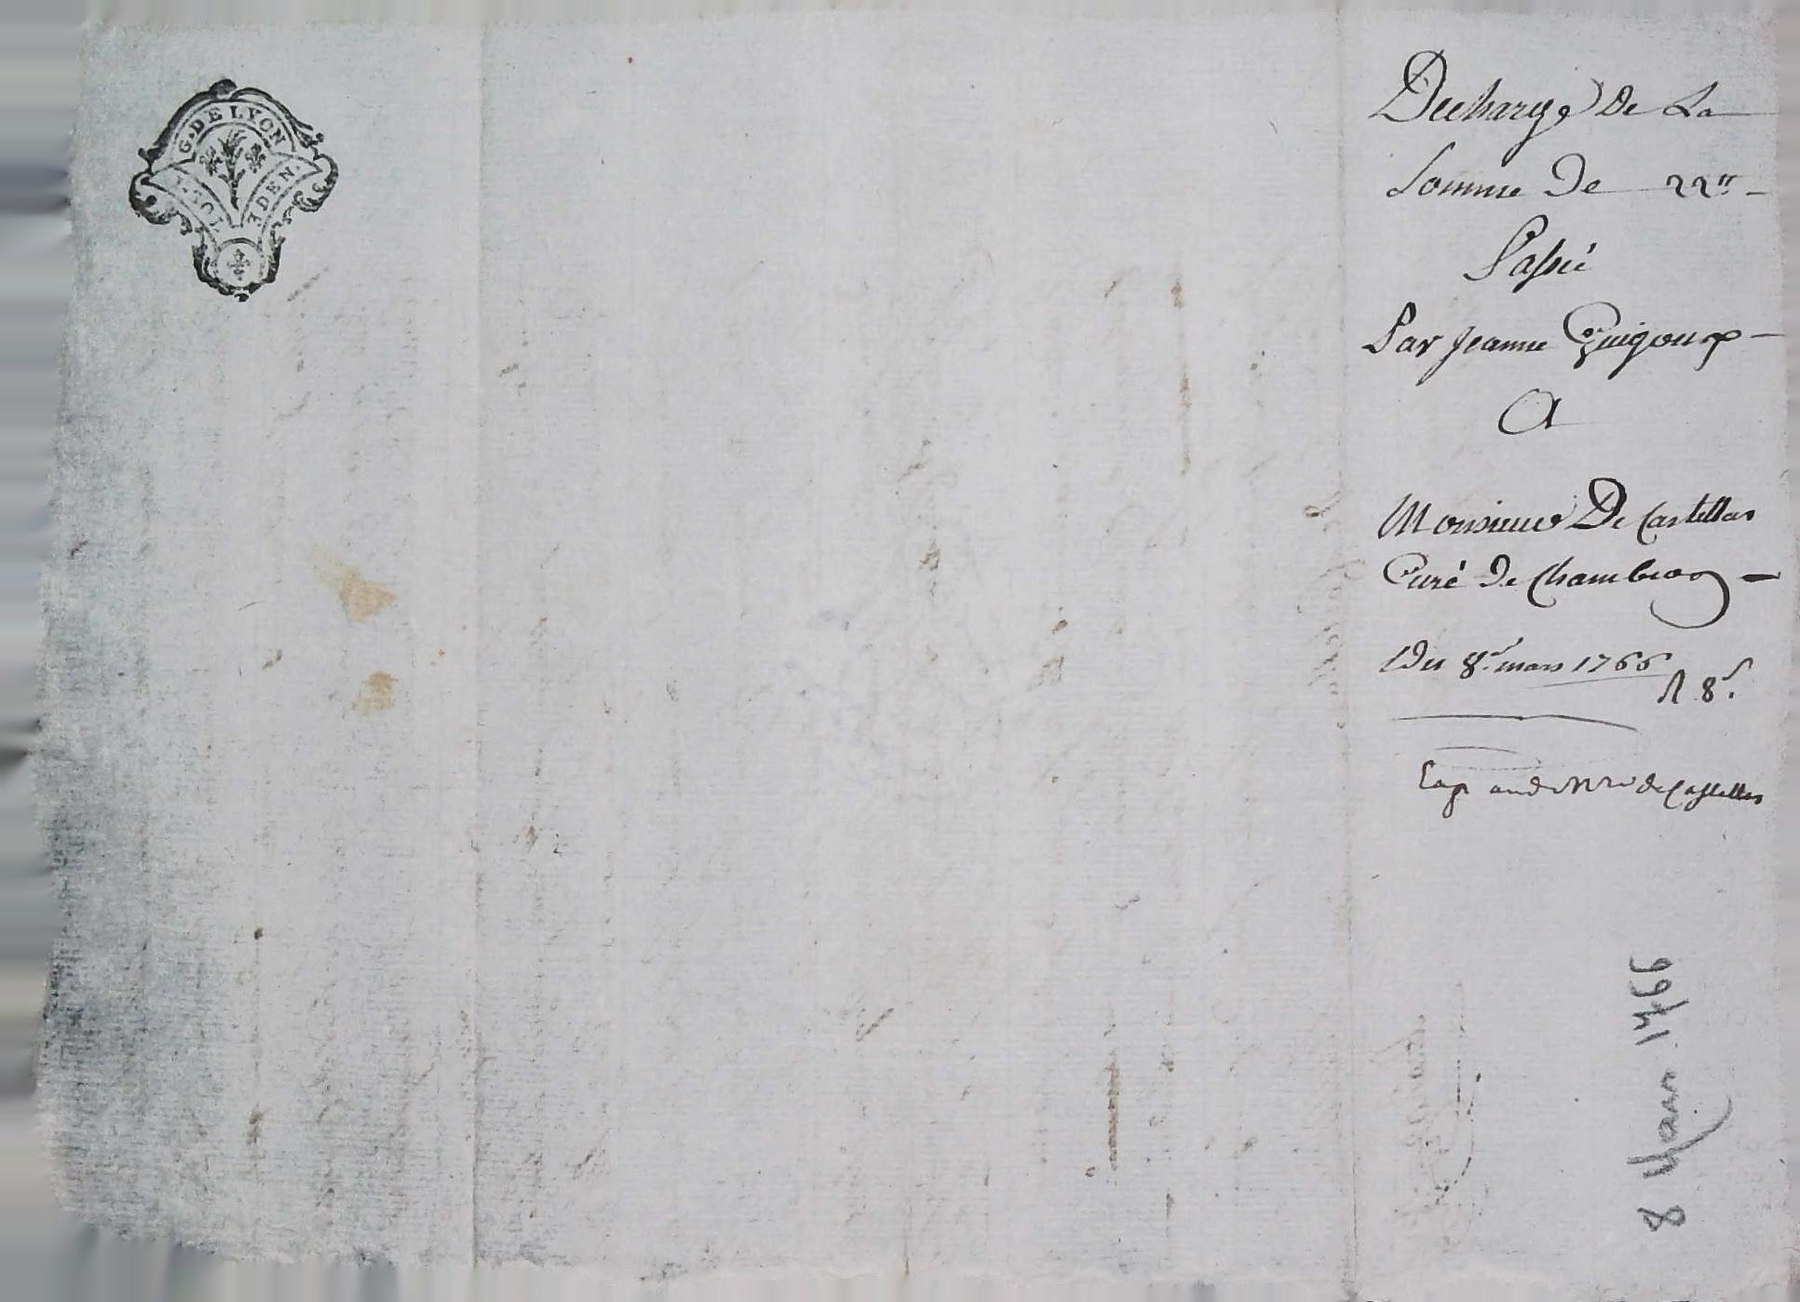 G. DE LYON
1. SOL 4 DEN.
Decharge De La
Somme De 22ᵗᵗ
Passée
Par Jeanne Guigoux
A
Monsieur De Castellas
Curé de Chambeon
Du 8ᵉ. mars 1766
R 8ˢ.
de Castellas
8 Mars 1766